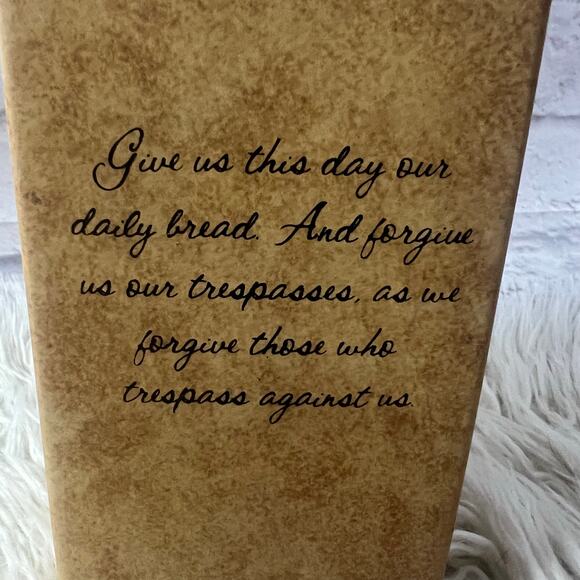 Give us this day our
daily bread. And forgive
us our trespasses, as we
forgive those who
trespass against us.